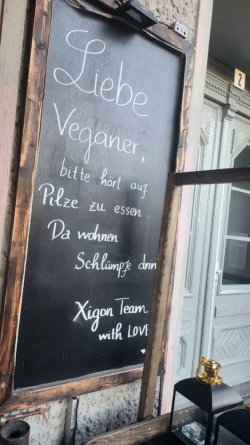 Liebe
Veganer,
bitte hört auf
Pilze zu essen.
Da wohnen
Schlümpfe drin
Xigon Team.
with LOVE
♥
Z